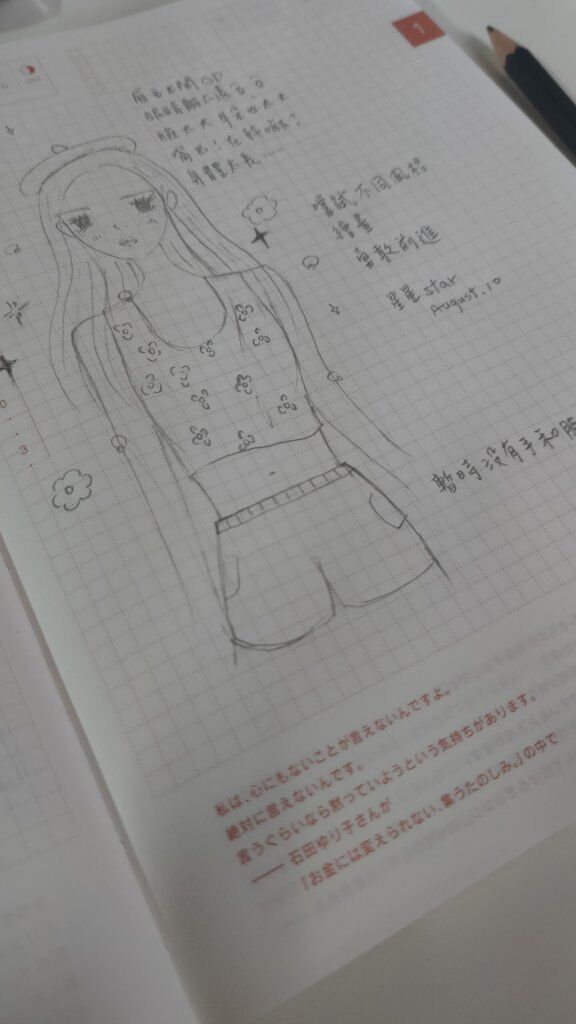 1
眉毛太開
眼睛離太遠
臉太大耳朵也太大
窩巴!在幹嘛?
身體太長....
嘗試不同風格
繪畫
勇敢前進
星星star
August.10
暫時沒有手和
3
私は、心にもないことが言えないんですよ。
絶対に言えないんです。
言うぐらいなら黙っていようという気持ちがあります。
—— 石田ゆり子さんが
『お金には変えられない、集うたのしみ。』の中で